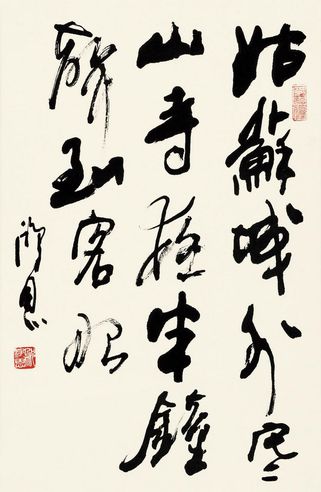 姑蘇城外寒
山寺夜半鐘
聲到客船